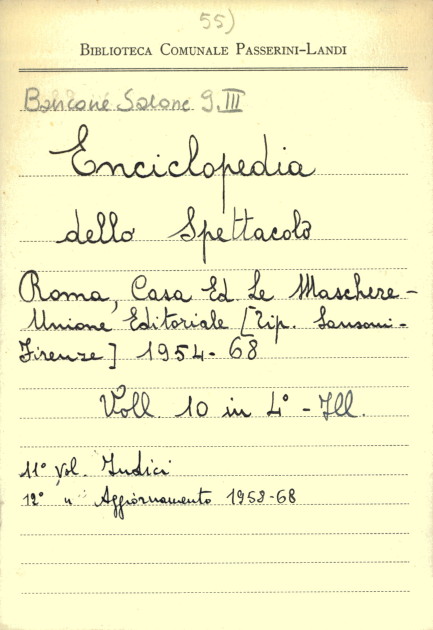 55)
BIBLIOTECA COMUNALE PASSERINI-LANDI
Bancone Salone 9.III
Enciclopedia
dello Spettacolo
Roma, Casa Ed. Le Maschere-
Unione Editoriale [Tip. Sansoni-
Firenze] 1954-68
Voll. 10 in 4° - Ill.
11° Vol. Indici
12° " Aggiornamento 1958-68